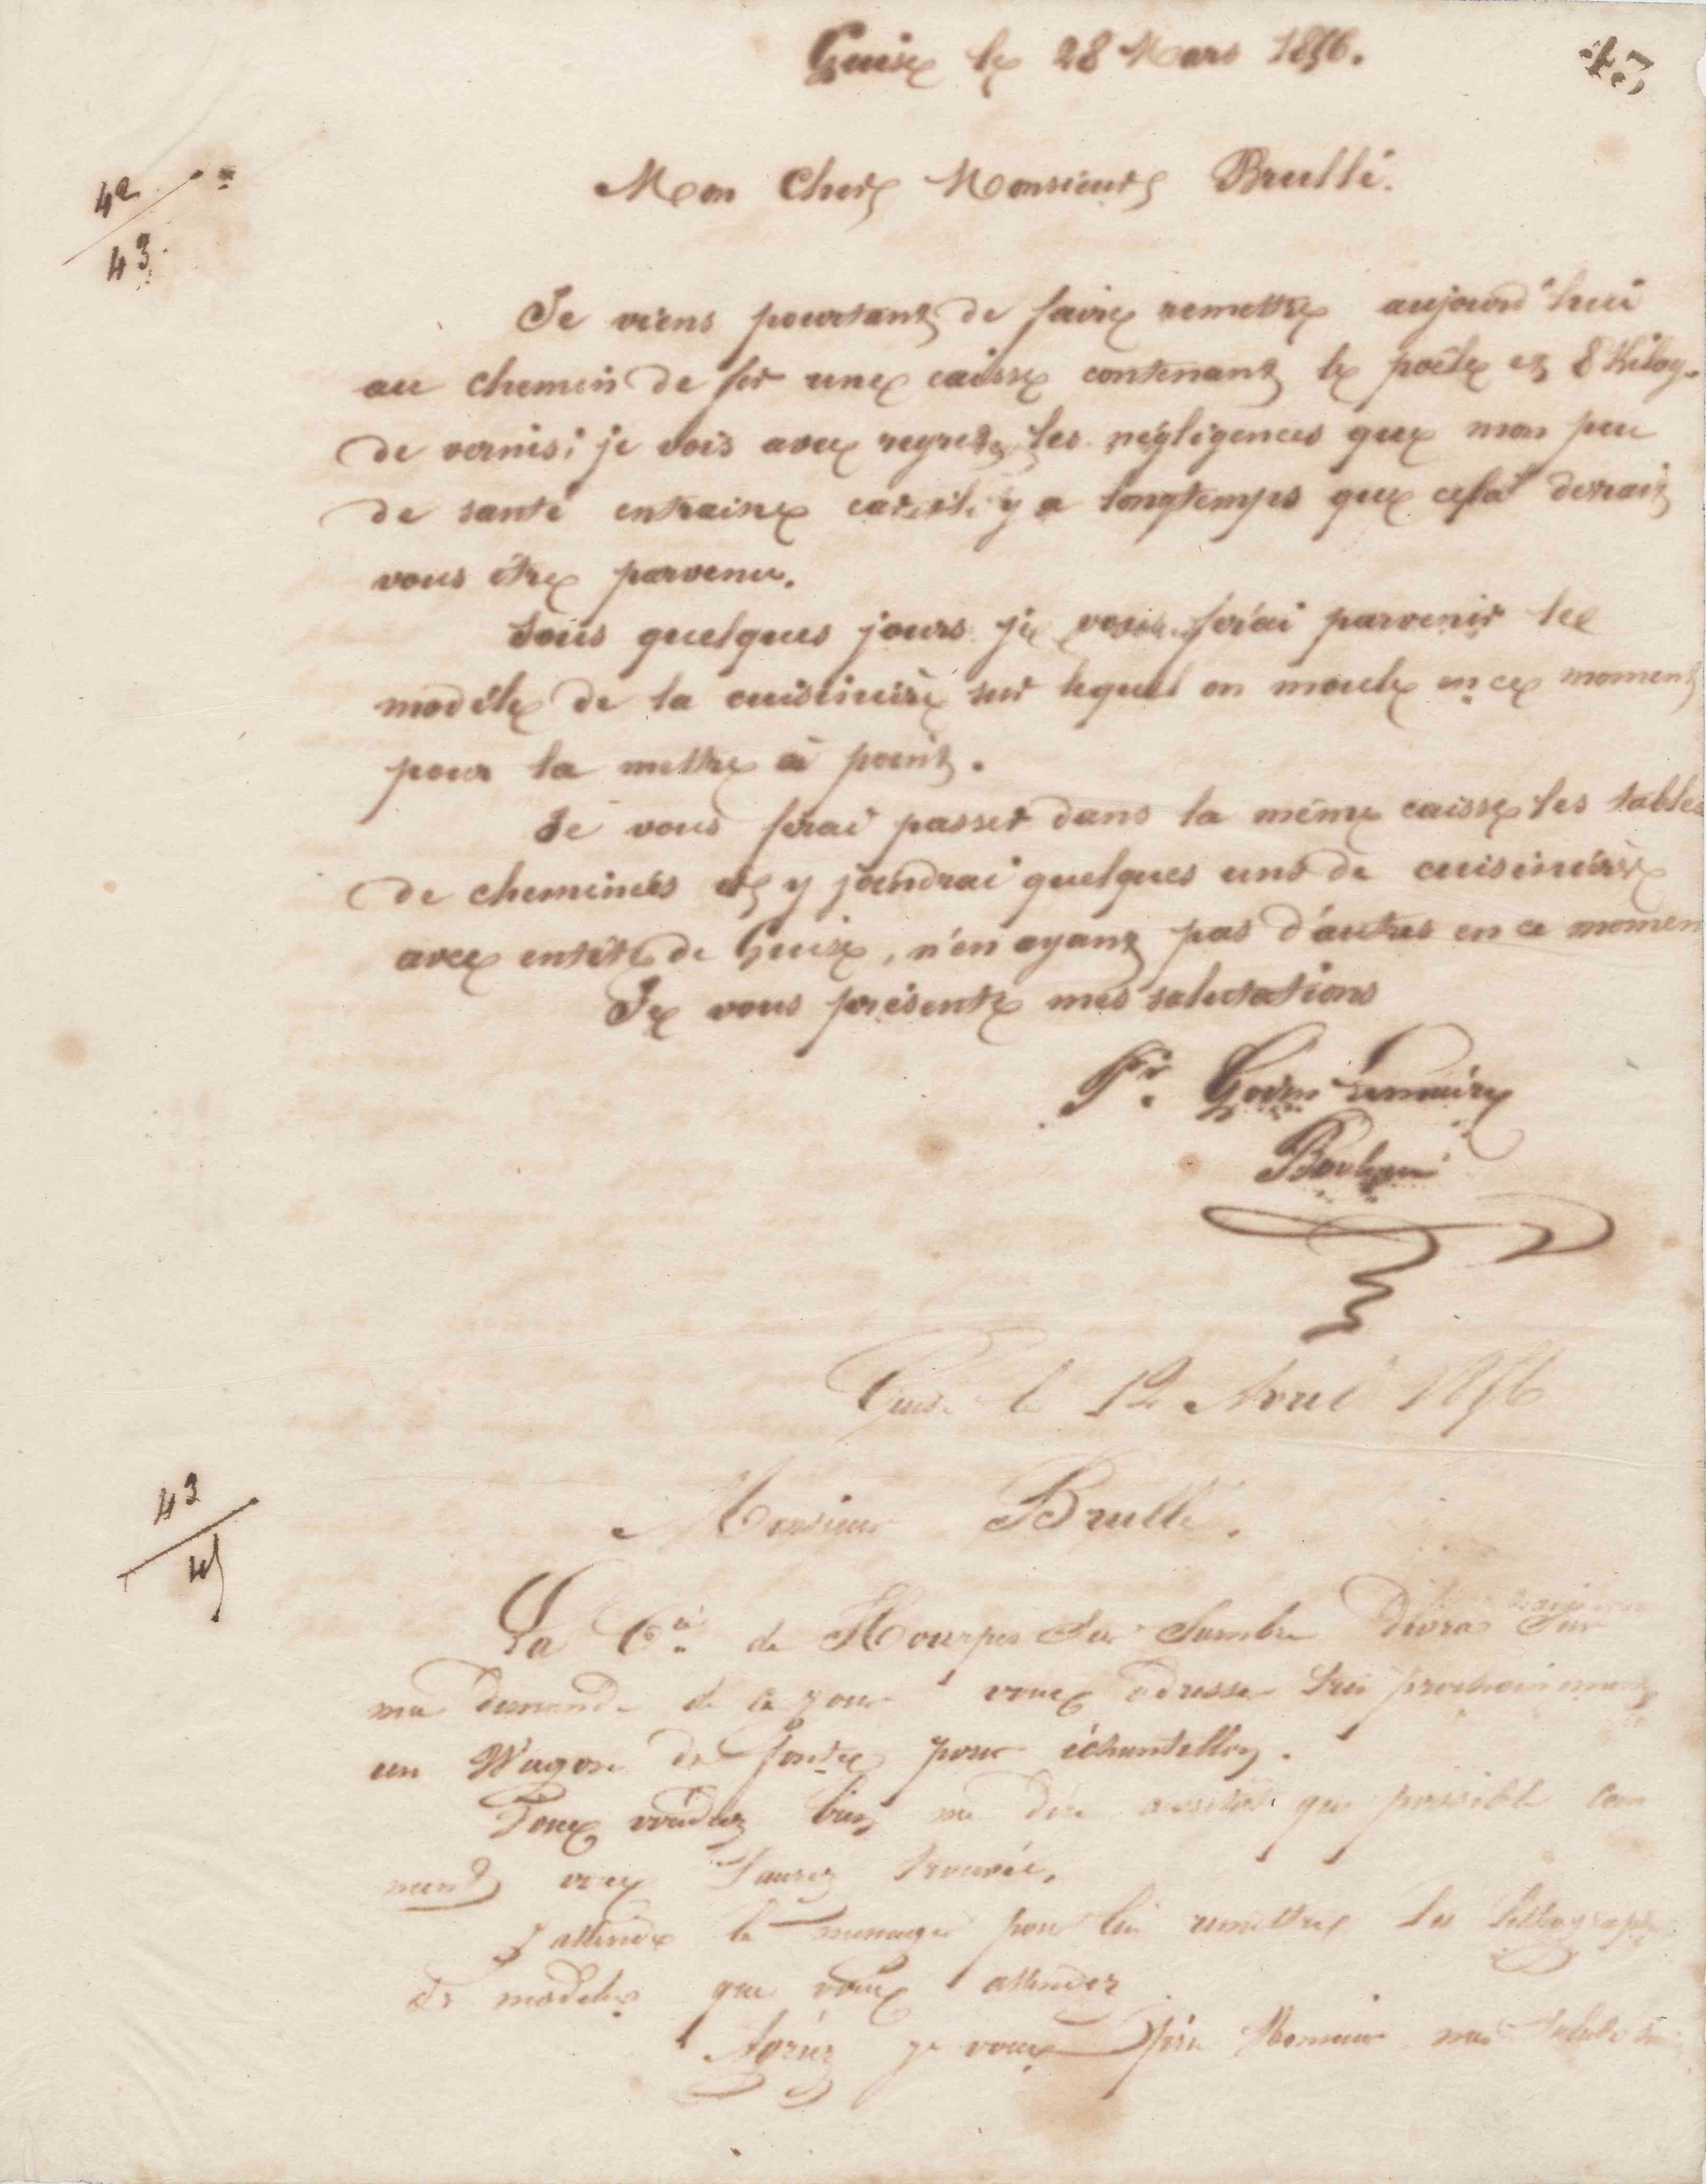 43
Guise le 28 Mars 1856.
42
43
Mon Cher Monsieur Brullé.
Je viens pourtant de faire remettre aujourd'hui
au chemin de fer une caisse contenant le poële et 8 Kilog.
de vernis; je vois avec regret les négligences que mon peu
de santé entraine car il y a longtemps que cela devrait
vous être parvenu.
Sous quelques jours je vous ferai parvenir le
modèle de la cuisinière sur lequel on moule en ce moment
pour la mettre à point.
Je vous ferai passer dans la même caisse les tables
de cheminées et y joindrai quelques uns de cuisinière
avec entête de Guise, n'en ayant pas d'autres en ce momen
Je vous présente mes salutations
Pr. Godin Lemaire
Guise le 12 Avril 1856
43
45
Monsieur Brullé.
La Cie de Hourpes sur Sambre devra sur
ma demande de ce jour vous adresser très prochainement
un Wagon de fonte pour échantillon.
Vous voudrez bien me dire aussitôt que possible com
ment vous l'aurez trouvée.
J'attends le messager pour lui remettre les lithographies
de modèles que vous attendez
Agréez je vous prie Monsieur mes salutations